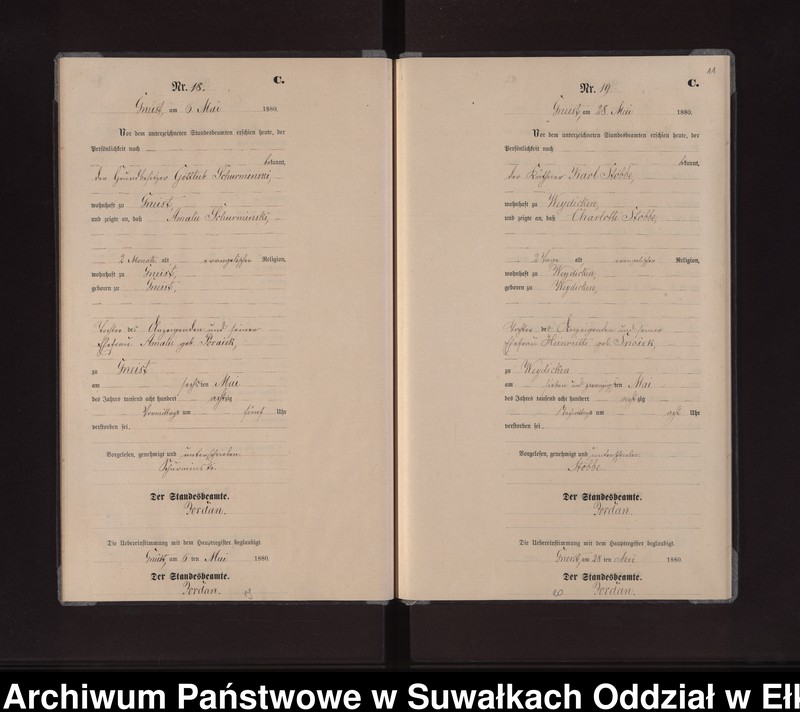 Nr. 18. C.
Gneist, am 6 Mai 1880.
Vor dem unterzeichneten Standesbeamten erschien heute, der
Persönlichkeit nach
bekannt,
der Grundbesitzer Gottlieb
wohnhaft zu Gneist,
und zeigte an, daß Amalie
2 Monate alt evangelischer Religion,
wohnhaft zu Gneist,
geboren zu Gneist,
Tochter des Anzeigenden und seiner
Ehefrau Amalie geb.
zu Gneist
am sechsten Mai
des Jahres tausend acht hundert achtzig
Vormittags um fünf Uhr
verstorben sei.
Vorgelesen, genehmigt und unterschrieben.
Der Standesbeamte.
Jordan.
Die Uebereinstimmung mit dem Hauptregister beglaubigt
Gneist, am 6 ten Mai 1880.
Der Standesbeamte.
Jordan.
Nr. 19 C.
Gneist, am 28. Mai 1880.
Vor dem unterzeichneten Standesbeamten erschien heute, der
Persönlichkeit nach
bekannt,
der Käthner Karl Stobbe,
wohnhaft zu Weydicken,
und zeigte an, daß Charlotte Stobbe,
2 Tage alt evangelischer Religion,
wohnhaft zu Weydicken,
geboren zu Weydicken,
Tochter des Anzeigenden und seiner
Ehefrau Henriette geb.
zu Weydicken
am sieben und zwanzigsten Mai
des Jahres tausend acht hundert achtzig
Nachmittags um acht Uhr
verstorben sei.
Vorgelesen, genehmigt und unterschrieben.
Stobbe.
Der Standesbeamte.
Jordan.
Die Uebereinstimmung mit dem Hauptregister beglaubigt
Gneist, am 28 ten Mai 1880.
Der Standesbeamte.
Jordan.
Archiwum Państwowe w Suwałkach Oddział w Ełk